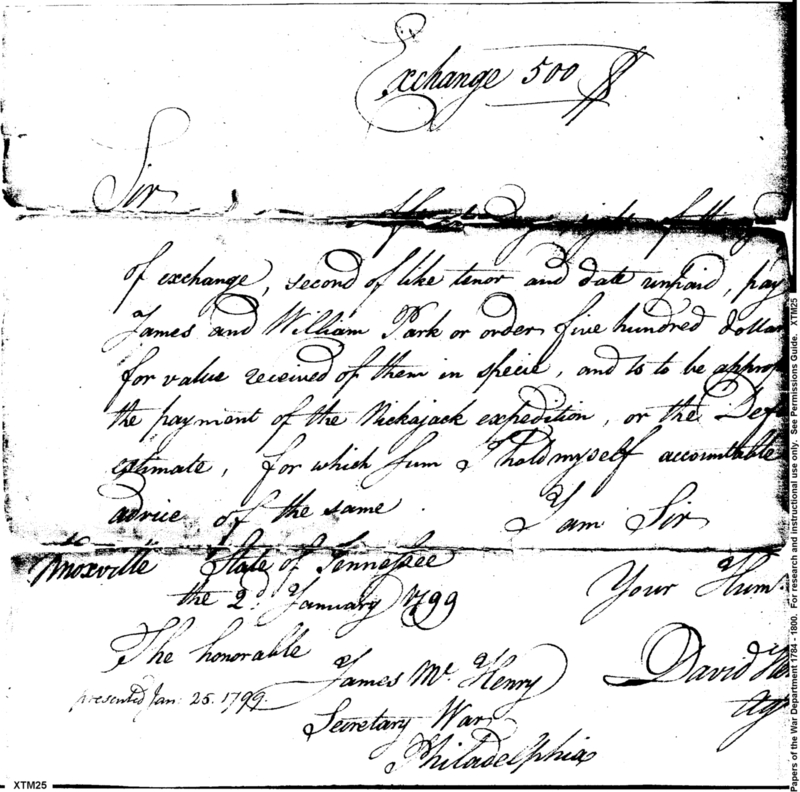 Exchange 500 $
Sir
days sight of this my
of exchange, second of like tenor and date unpaid, pay
James and William Park or order five hundred dollar
for value received of them in specie, and is to be approp
the payment of the Nickajack expedition, or the Defi
estimate, for which sum I hold myself accountable
advice of the same. I am Sir
Knoxville State of Tennessee
the 2d. January 1799 Your Hum.
The honorable
James Mc. Henry David He
presented Jan: 25. 1799. Ag
Secretary War
Philadelphia
XTM25
Papers of the War Department 1784 - 1800. For research and instructional use only. See Permissions Guide. XTM25